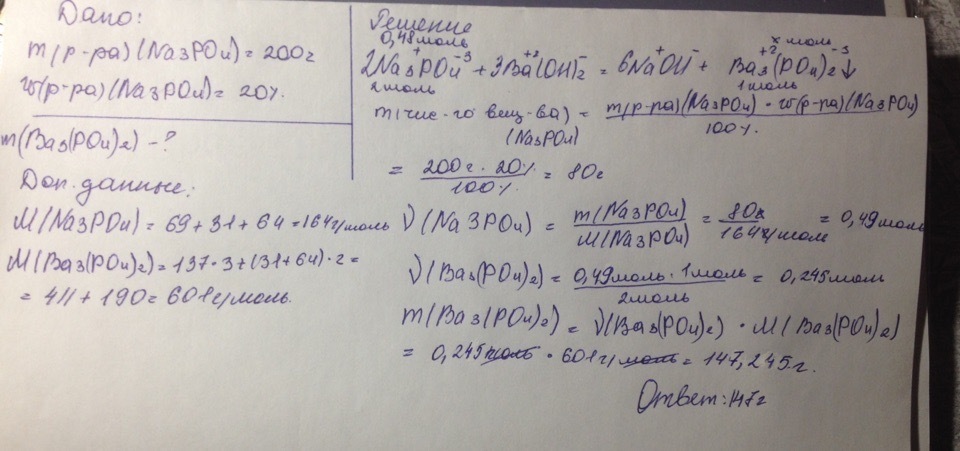 Дано:
m(р-ра)(Na3PO4) = 200г
w(р-ра)(Na3PO4) = 20%
m(Ba3(PO4)2) - ?
Доп. данные:
M(Na3PO4) = 69 + 31 + 64 = 164г/моль
M(Ba3(PO4)2) = 137·3 + (31 + 64)·2 =
= 411 + 190 = 601г/моль.
Решение
0,48моль x моль
2Na3PO4 + 3Ba(OH)2 = 6NaOH + Ba3(PO4)2↓
2моль 1моль
m(чис-го вещ-ва)(Na3PO4) = m(р-ра)(Na3PO4) · w(р-ра)(Na3PO4) / 100%
= 200г · 20% / 100% = 80г
ν(Na3PO4) = m(Na3PO4) / M(Na3PO4) = 80г / 164г/моль = 0,49моль
ν(Ba3(PO4)2) = 0,49моль · 1моль / 2моль = 0,245моль
m(Ba3(PO4)2) = ν(Ba3(PO4)2) · M(Ba3(PO4)2)
= 0,245моль · 601г/моль = 147,245г.
Ответ: 147г